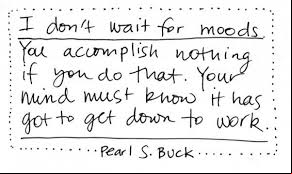 I don't wait for moods
You accomplish nothing
if you do that. Your
mind must know it has
got to get down to work.
Pearl S. Buck